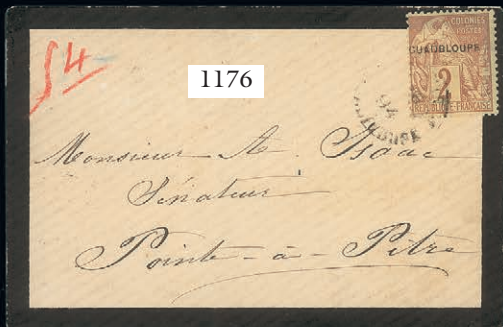 COLONIES
POSTES
GUADELOUPE
2
4
REPUBLIQUE FRANÇAISE
54
1176
94
Monsieur A. Isaac
Sénateur
Pointe-à-Pitre